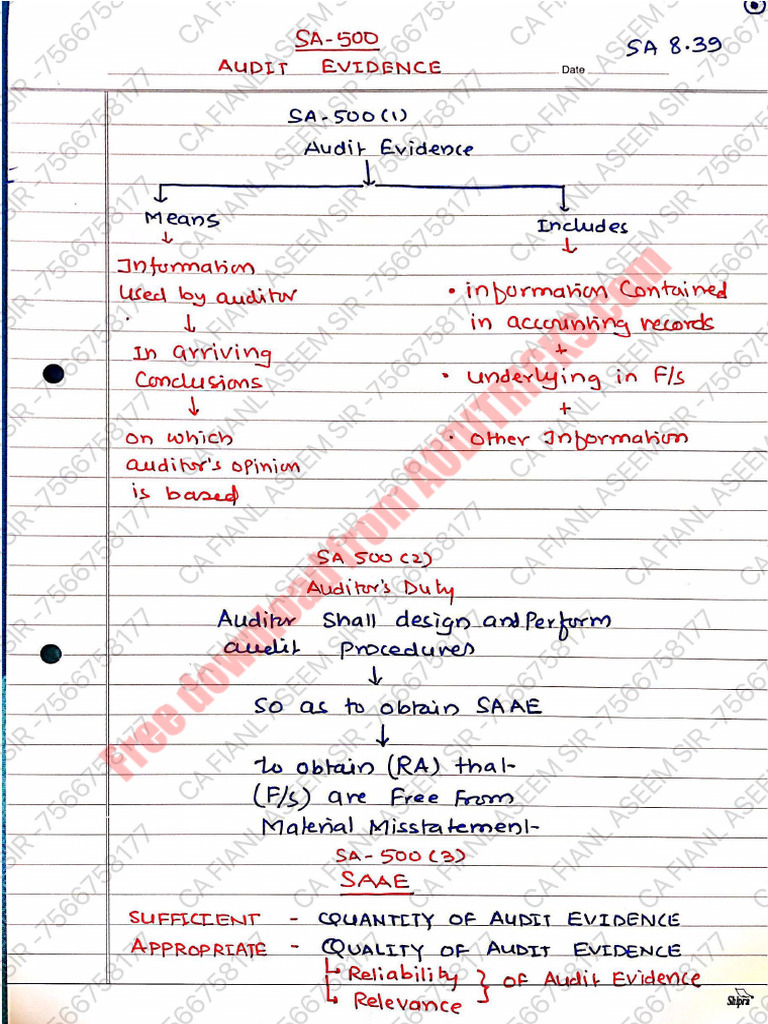 SA-500
SA 8.39
AUDIT EVIDENCE
Date
SA-500(1)
Audit Evidence
Means
Includes
Information
used by auditor
In arriving
Conclusions
on which
auditor's opinion
is based
• information Contained
in accounting records
+
• underlying in F/s
+
• other Information
SA 500(2)
Auditor's Duty
Auditor shall design and Perform
audit procedures
So as to obtain SAAE
to obtain (RA) that
(F/s) are Free From
Material Misstatement
SA-500(3)
SAAE
SUFFICIENT - QUANTITY OF AUDIT EVIDENCE
APPROPRIATE - QUALITY OF AUDIT EVIDENCE
Reliability } of Audit Evidence
Relevance
Shipra
Free download from AUDVTRICKS.com
CA FIANL ASEEM SIR -7566758177